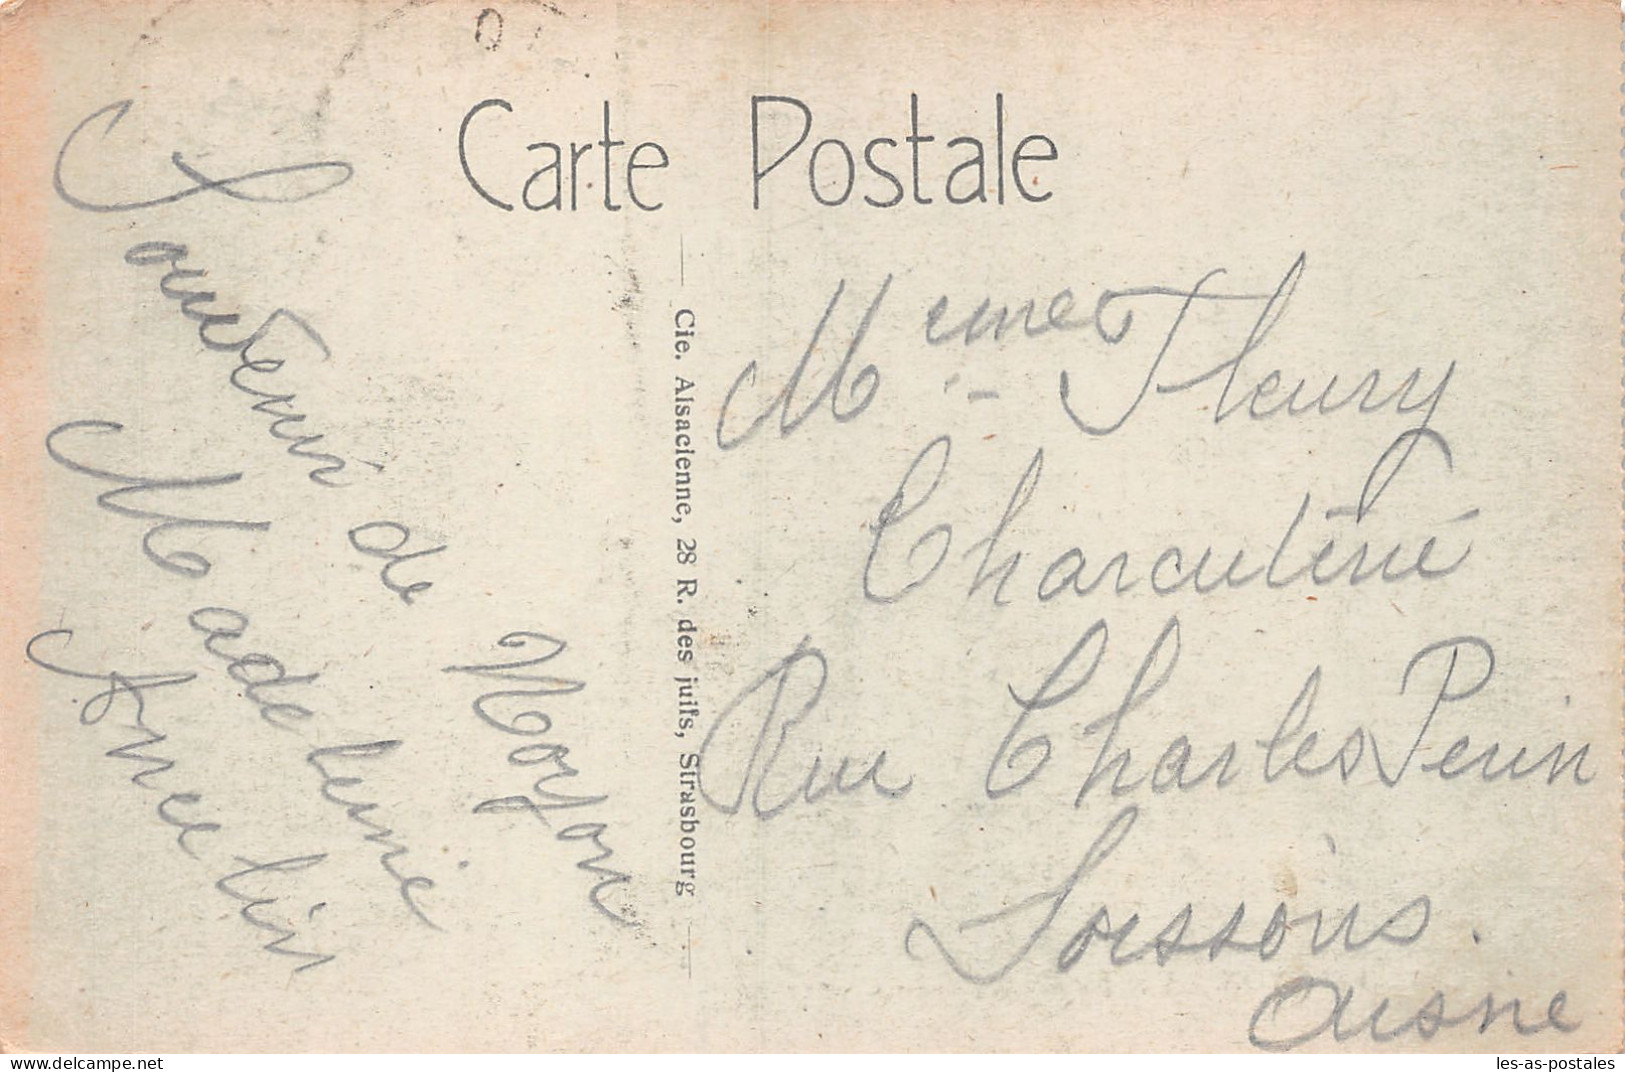 Carte Postale
Souvenir de Noyon
Madeleine
Cie. Alsacienne, 28 R. des juifs, Strasbourg
Meme Fleury
Charcuterie
Rue Charles Perin
Soissons.
Aisne
delcampe.net
les-as-postales